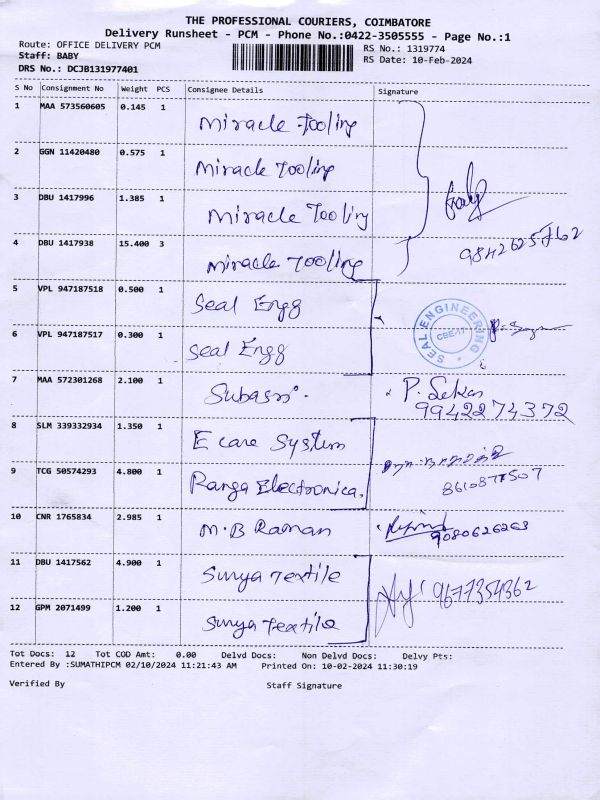 THE PROFESSIONAL COURIERS, COIMBATORE
Delivery Runsheet - PCM - Phone No.:0422-3505555 - Page No.:1
Route: OFFICE DELIVERY PCM
RS No.: 1319774
Staff: BABY
RS Date: 10-Feb-2024
DRS No.: DCJB131977401
S No Consignment No Weight PCS Consignee Details Signature
1 MAA 573560605 0.145 1 Miracle Tooling
2 GGN 11420480 0.575 1 Miracle Tooling
3 DBU 1417996 1.385 1 Miracle Tooling
4 DBU 1417938 15.400 3 Miracle Tooling 9842625762
5 VPL 947187518 0.500 1 Seal Engg
SEAL ENGINEERING
CBE-17
6 VPL 947187517 0.300 1 Seal Engg
7 MAA 572301268 2.100 1 P. Sekar
9942274372
8 SLM 339332934 1.350 1 E care System
9 TCG 50574293 4.800 1 Ranga Electronica.
10 CNR 1765834 2.985 1 M.B Raman 9080626263
11 DBU 1417562 4.900 1 Surya Textile 9677354362
12 GPM 2071499 1.200 1 Surya Textile
Tot Docs: 12 Tot COD Amt: 0.00 Delvd Docs: Non Delvd Docs: Delvy Pts:
Entered By :SUMATHIPCM 02/10/2024 11:21:43 AM Printed On: 10-02-2024 11:30:19
Verified By Staff Signature